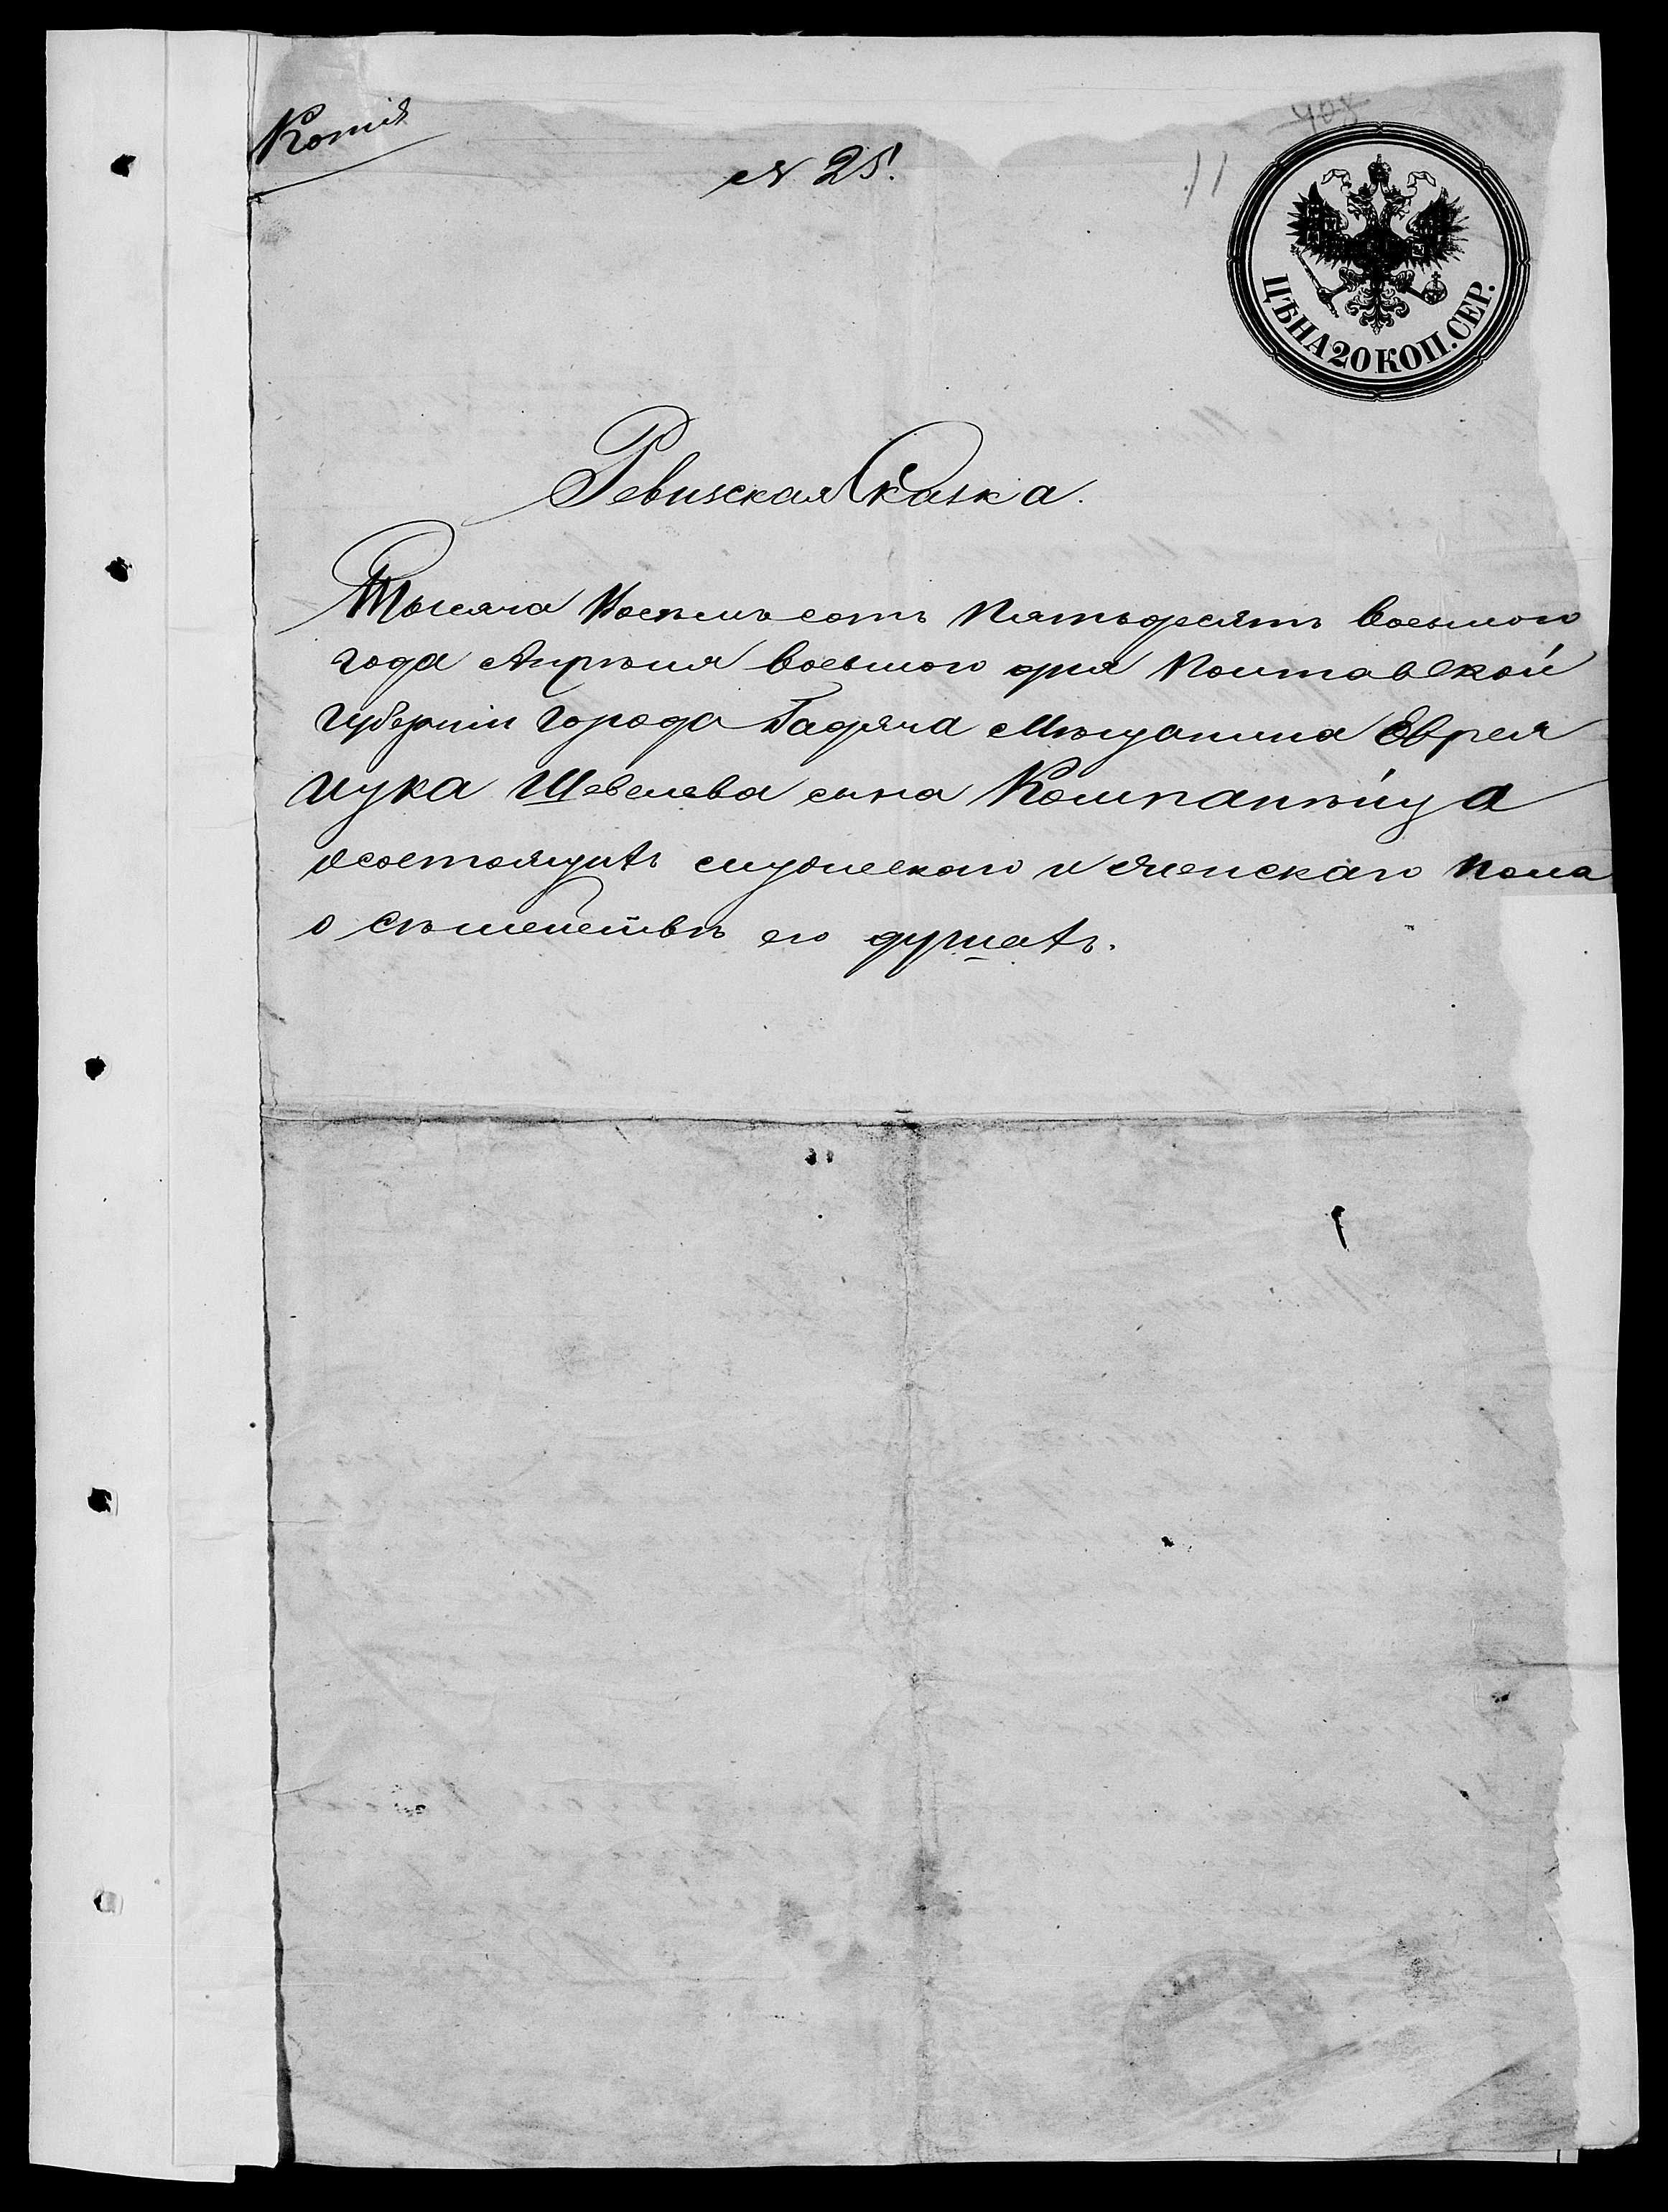 Копія
408
№ 25.
11
ЦѢНА 20 КОП. СЕР.
Ревизская Сказка.
Тысяча Восемьсотъ Пятьдесятъ восьмого
года Апрѣля восьмого дня Полтавской
Губерніи Города Гадяча Мѣщанина Еврея
Цука Шевелева сына Компанѣйца
о состоящихъ мужескаго и женскаго пола
о сѣмействѣ его душахъ.